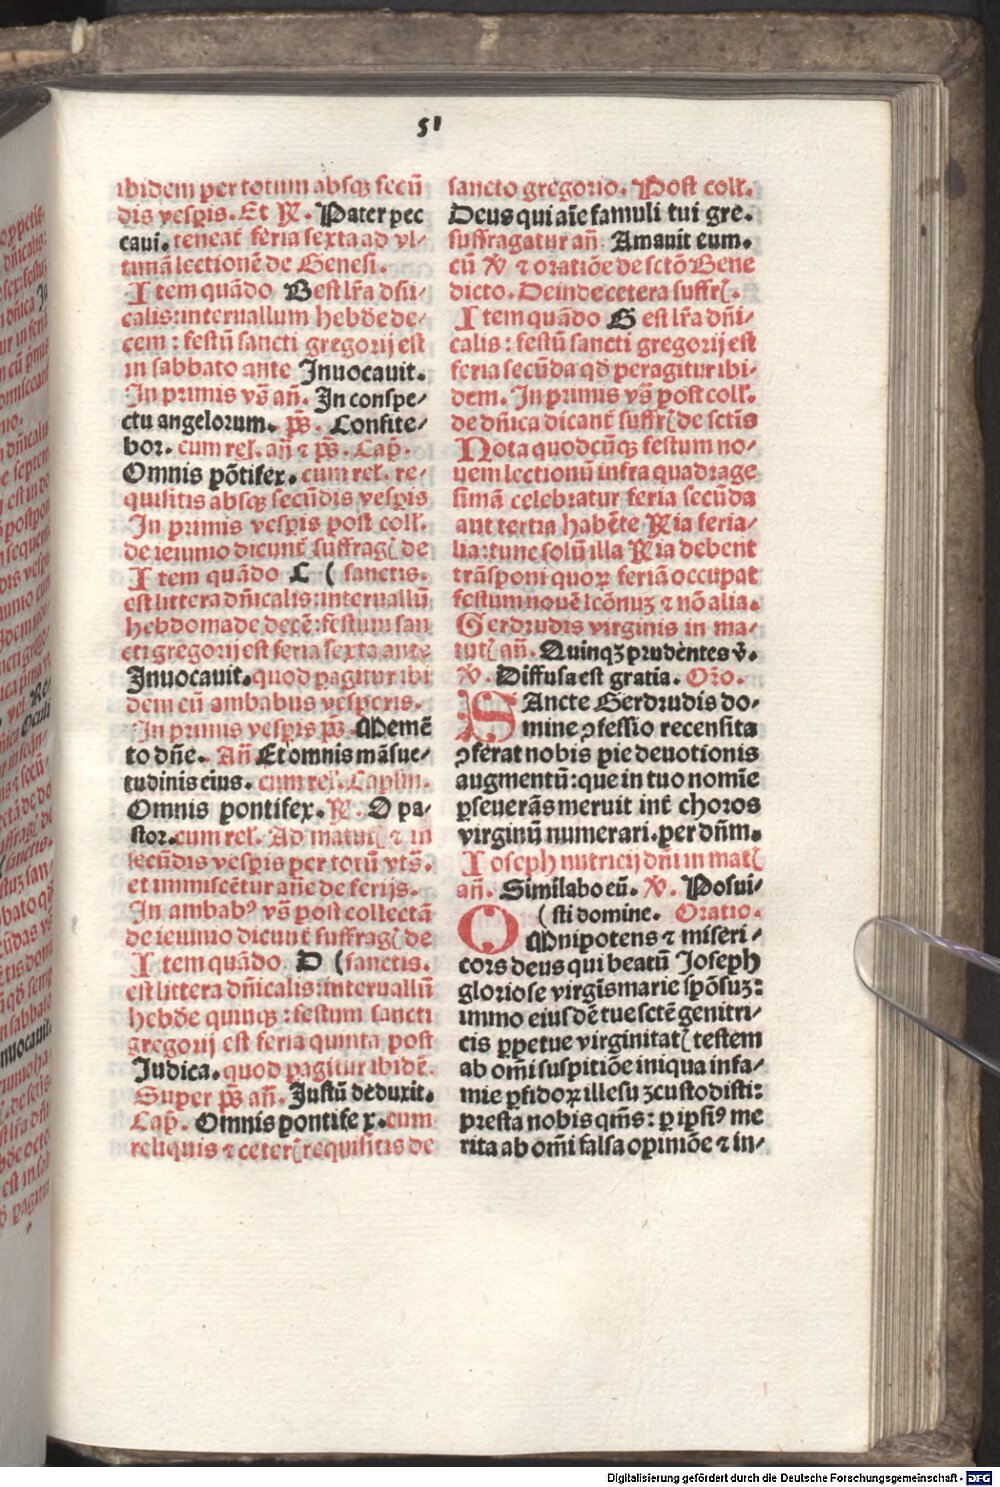 51
ibidem per totum absqꝫ secū
dis vesp̄is. Et R̄. Pater pec
caui. teneat̄ feria sexta ad vl⸗
timā lectionē de Genesi.
Item quādo B est lr̄a dn̄i⸗
calis: interuallum hebd̄e de⸗
cem: festū sancti gregorij est
in sabbato ante Inuocauit.
In primis vs̄ an̄. In conspe⸗
ctu angelorum. ps̄. Confite⸗
bor. cum rel. an̄ ⁊ ps̄. Cap̄.
Omnis pōtifex. cum rel. re⸗
quisitis absqꝫ secūdis vesp̄is
In primis vesp̄is post coll.
de ieiunio dicunt̄ suffragꝭ de
Item quādo C ( sanctis.
est littera dn̄icalis: interuallū
hebdomade decē: festum san
cti gregorij est feria sexta ante
Inuocauit. quod ꝑagitur ibi
dem cū ambabus vesperis.
In primis vesp̄is ps̄. Memē
to dn̄e. An̄ Et omnis māsue⸗
tudinis eius. cum rel. Caplm̄.
Omnis pontifex. R̄. O pa⸗
stor. cum rel. Ad matutꝭ ⁊ in
secūdis vesp̄is per totū vts̄.
et immiscētur an̄e de ferijs.
In ambabꝰ vs̄ post collectā
de ieiunio dicunt̄ suffragꝭ de
Item quādo D ( sanctis.
est littera dn̄icalis: interuallū
hebd̄e quinqꝫ: festum sancti
gregorij est feria quinta post
Judica. quod ꝑagitur ibidē.
Super ps̄ an̄. Justū deduxit.
Cap̄. Omnis pontifex. cum
reliquis ⁊ ceterꝭ requisitis de
sancto gregorio. Post coll.
Deus qui aīe famuli tui gre.
suffragatur an̄ Amauit eum.
cū V̄ ⁊ oratiōe de sctō Bene
dicto. Deinde cetera suffrꝭ.
Item quādo G est lr̄a dn̄i⸗
calis: festū sancti gregorij est
feria secūda qd̄ peragitur ibi⸗
dem. In primis vs̄ post coll.
de dn̄ica dicant̄ suffrꝭ de sctīs
Nota quodcūqꝫ festum no⸗
uem lectionū infra quadrage
simā celebratur feria secūda
aut tertia habēte R̄ia feria⸗
lia: tunc solū illa R̄ia debent
trāsponi quoꝝ feriā occupat
festum nouē lcōnuꝫ ⁊ nō alia.
Gerdrudis virginis in ma⸗
tutꝭ an̄. Quinqꝫ prudētes v̄.
V̄. Diffusa est gratia. Oro.
SAncte Gerdrudis do⸗
mine ꝯfessio recensita
ꝯferat nobis pie deuotionis
augmentū: que in tuo nomīe
ꝑseuerās meruit int̄ choros
virginū numerari. per dn̄m.
Ioseph nutricij dn̄i in matꝭ
an̄. Similabo eū. V̄. Posui⸗
( sti domine. Oratio.
OMnipotens ⁊ miseri⸗
cors deus qui beatū Joseph
gloriose virgīs marie spōsuꝫ:
immo eiusdē tue sctē genitri⸗
cis ꝑpetue virginitatꝭ testem
ab omī suspitiōe iniqua infa⸗
mie ꝑfidoꝝ illesū ꝫ custodisti:
presta nobis qm̄s: ꝑ ipsiꝰ me
rita ab omī falsa opiniōe ⁊ in⸗
Digitalisierung gefördert durch die Deutsche Forschungsgemeinschaft - DFG